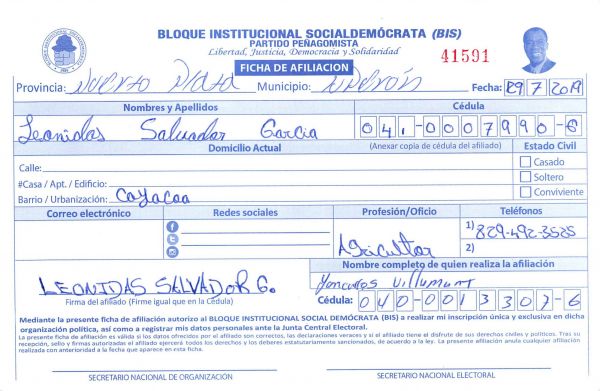 BLOQUE INSTITUCIONAL SOCIALDEMÓCRATA (BIS)
PARTIDO PEÑAGOMISTA
Libertad, Justicia, Democracia y Solidaridad
41591
FICHA DE AFILIACION
Provincia: Puerto Plata Municipio: Fecha: 29 7 2019
Nombres y Apellidos Cédula
Leonidas Salvador Garcia 041-0007990-6
Domicilio Actual (Anexar copia de cédula del afiliado) Estado Civil
Calle: Casado
#Casa / Apt. / Edificio: Soltero
Barrio / Urbanización: Cayacoa Conviviente
Correo electrónico Redes sociales Profesión/Oficio Teléfonos
1) 829-492-3525
Agricultor 2)
Nombre completo de quien realiza la afiliación
LEONIDAS SALVADOR G.
Firma del afiliado (Firme igual que en la Cédula) Cédula: 040-0013307-6
Mediante la presente ficha de afiliación autorizo al BLOQUE INSTITUCIONAL SOCIAL DEMÓCRATA (BIS) a realizar mi inscripción única y exclusiva en dicha
organización política, así como a registrar mis datos personales ante la Junta Central Electoral.
La presente ficha de afiliación es válida si los datos ofrecidos por el afiliado son correctos, las declaraciones veraces y si el afiliado tiene el disfrute de sus derechos civiles y políticos. Tras su
recepción, sello y firmas autorizadas el afiliado ejercerá todos los derechos y los deberes estatutariamente sancionados, de acuerdo a la ley. La presente afiliación anula cualquier afiliación
realizada con anterioridad a la fecha que aparece en esta ficha.
SECRETARIO NACIONAL DE ORGANIZACIÓN SECRETARIO NACIONAL ELECTORAL